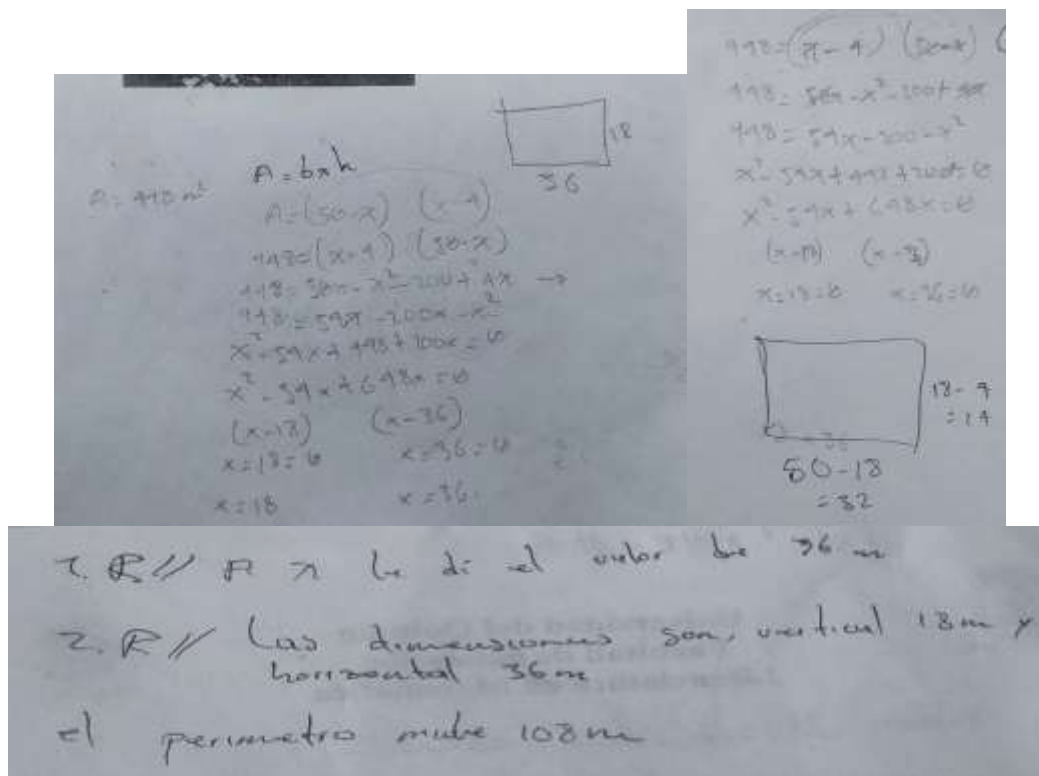 A = 448 m²
A = b x h
18
36
A = (50-x) (x-4)
448 = (x-4) (50-x)
448 = 50x - x² - 200 + 4x →
448 = 54x - 200x - x²
x² - 54x + 448 + 200x = 0
x² - 54x + 648x = 0
(x-18) (x-36)
x = 18 = 0 x = 36 = 0
x = 18 x = 36
448 = (x-4) (50-x)
448 = 50x - x² - 200 + 4x
448 = 54x - 200 - x²
x² - 54x + 448 + 200 = 0
x² - 54x + 648x = 0
(x-18)
x = 18 = 0 x = 36 = 0
18 - 4
= 14
50 - 18
= 32
1. R// A x le di el valor de 36 m
2. R// Las dimensiones son, vertical 18m y
horizontal 36m
el perimetro mide 108m